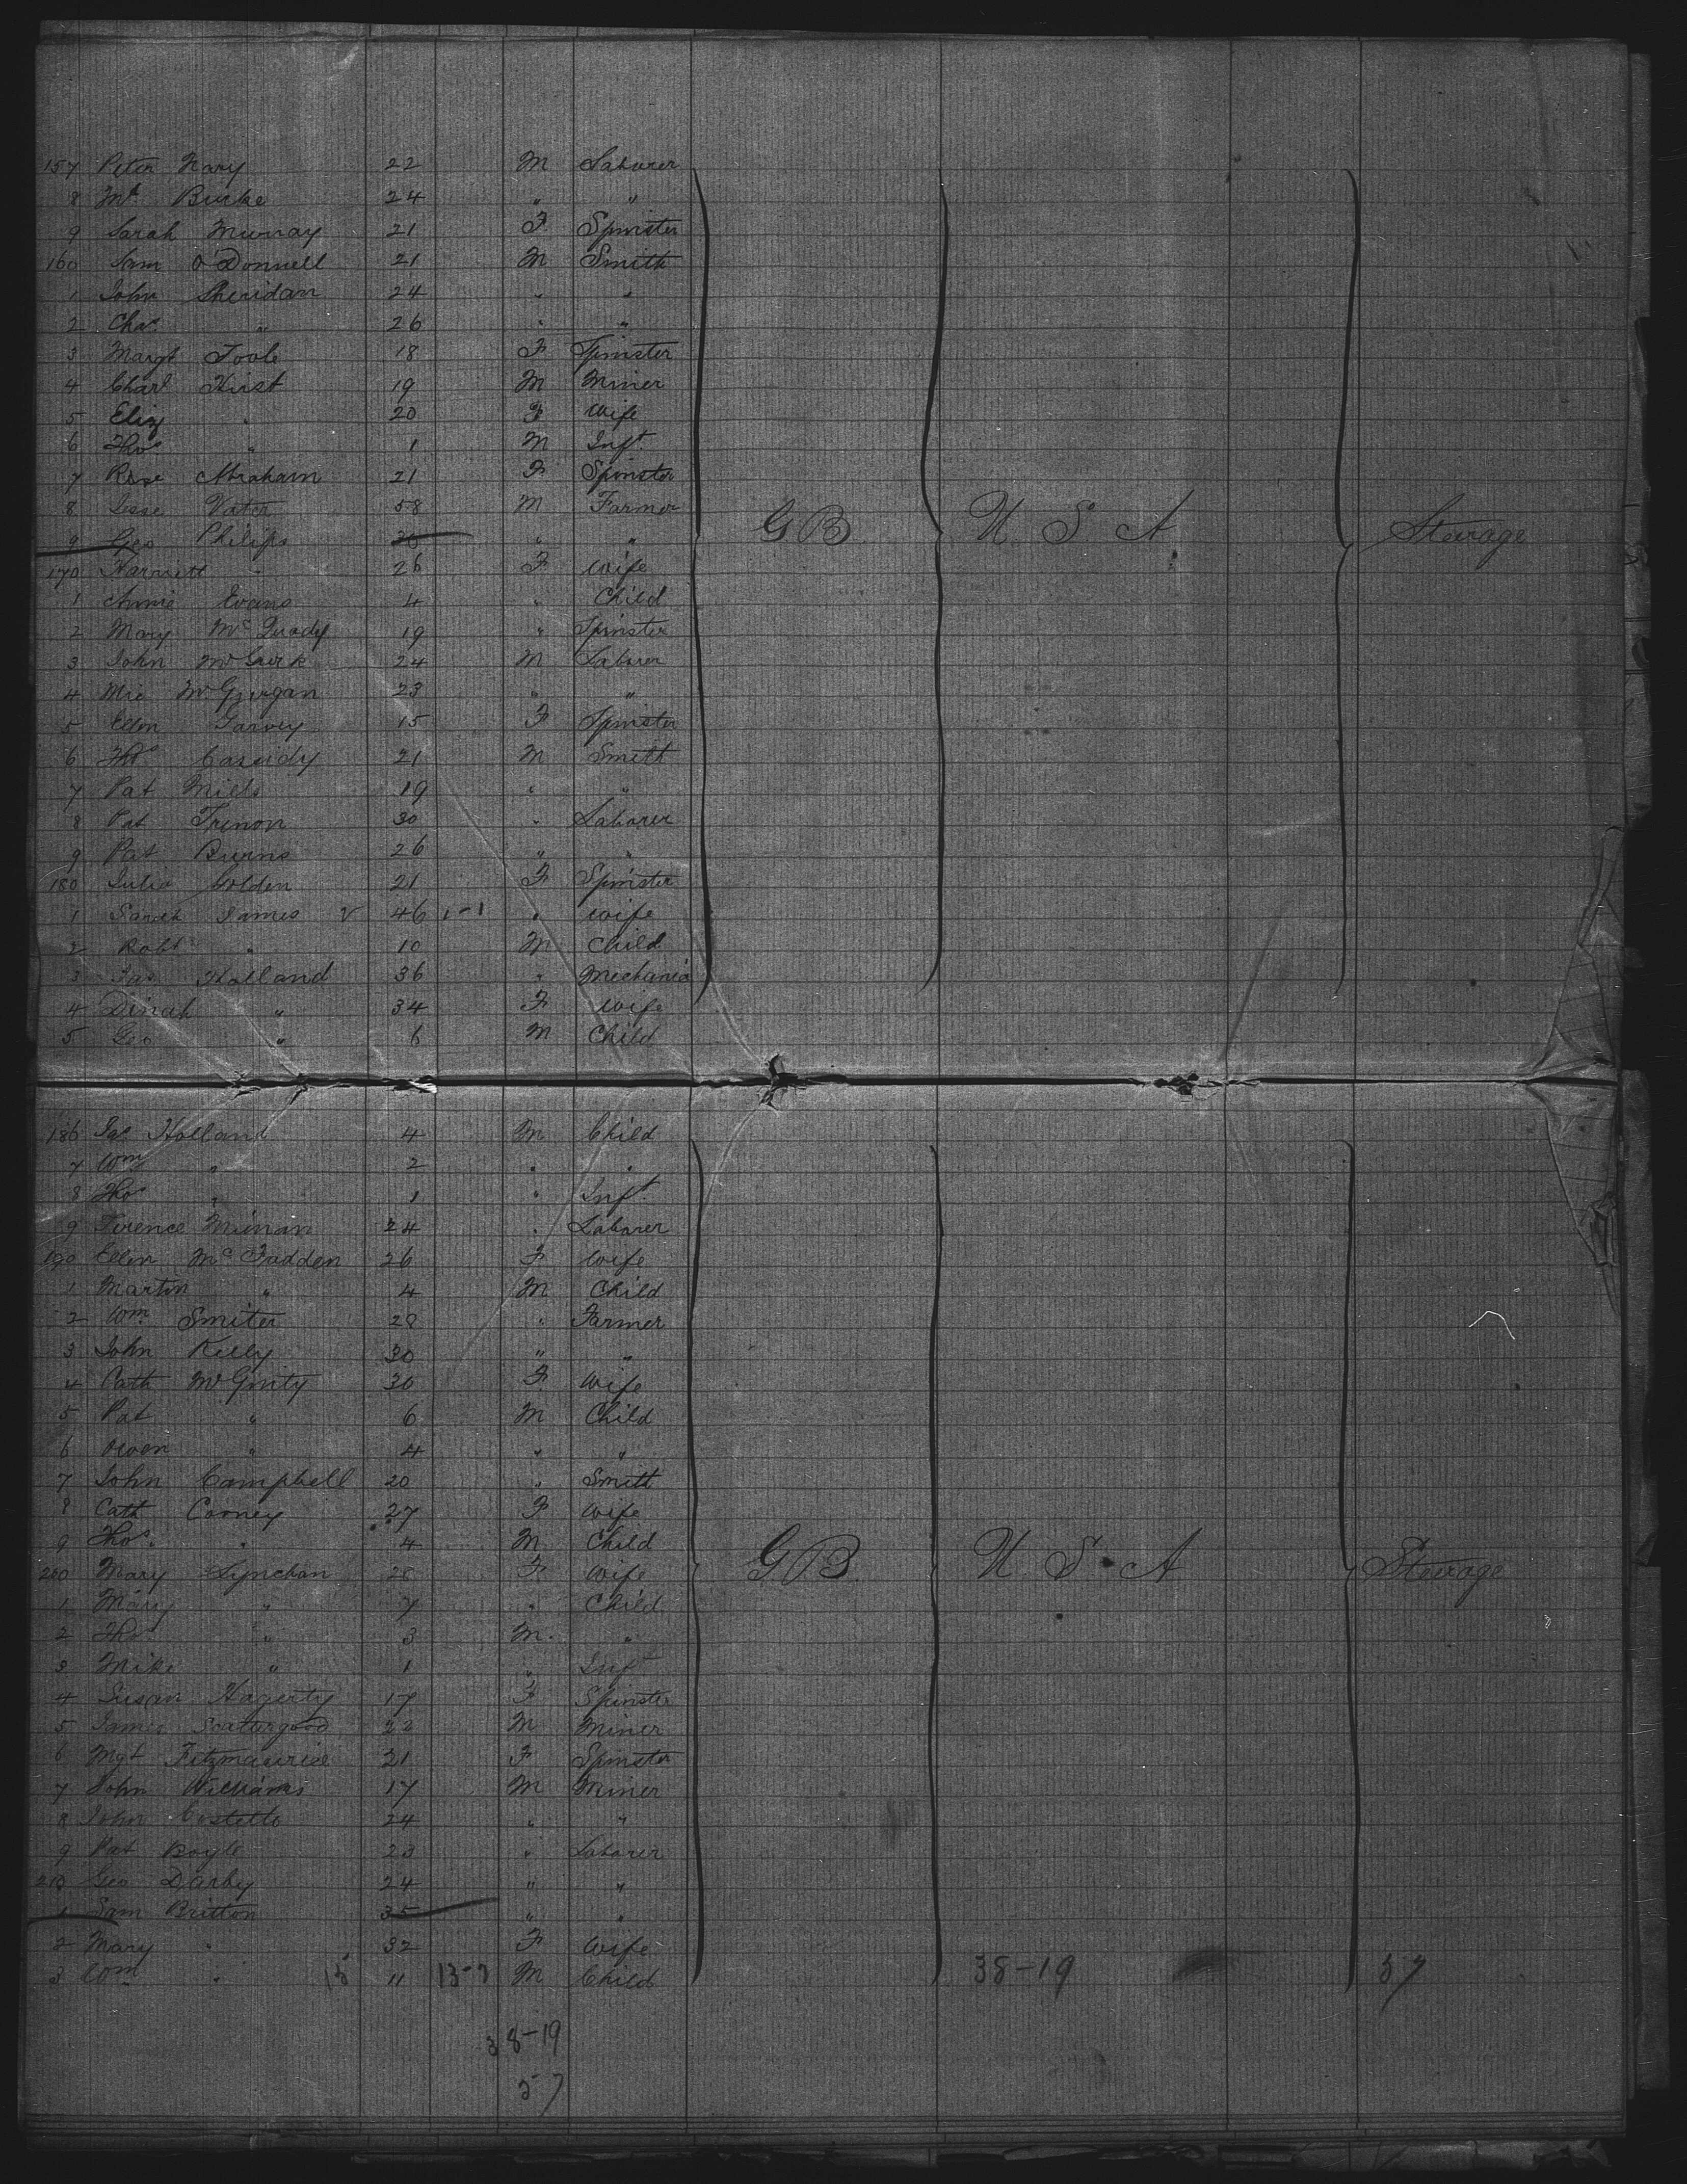 157 Peter Nary 22 M Laborer
8 Mt Burke 24 " "
9 Sarah Murray 21 F Spinster
160 Sam O'Donnell 21 M Smith
1 John Sheridan 24 " "
2 Chas " 26 " "
3 Margt Toole 18 F Spinster
4 Charl Hirst 19 M Miner
5 Eliz " 20 F Wife
6 Thos " 1 M Inft
7 Rose Abraham 21 F Spinster
8 Jesse Vater 58 M Farmer G B U. S A Steerage
9 Geo Philips " "
170 Harriett " 26 F Wife
1 Annie Evans 4 " Child
2 Mary Mc 19 " Spinster
3 John McGurk 24 M Laborer
4 Mic McGurgan 23 " "
5 Ellen Garvey 15 F Spinster
6 Thos Cassidy 21 M Smith
7 Pat Mills 19 " "
8 Pat 30 " Laborer
9 Pat Burns 26 " "
180 Julia Golden 21 F Spinster
1 Sarah James v 46 1-1 " Wife
2 Robt " 10 M Child
3 Jas Holland 36 " Mechanic
4 Dinah " 34 F Wife
5 Geo " 6 M Child
186 Jas Holland 4 M Child
7 Wm " 2 " "
8 Thos " 1 " Inft
9 Terence 24 " Laborer
190 Ellen McFadden 26 F Wife
1 Martin " 4 M Child
2 Wm Smiter 28 " Farmer
3 John Kelly 30 " "
4 Cath McGinity 30 F Wife
5 Pat " 6 M Child
6 Owen " 4 " "
7 John Campbell 20 " Smith
8 Cath Cooney 27 F Wife
9 Thos " 4 M Child
200 Mary Lynchan 28 F Wife G B U. S. A Steerage
1 Mary " 7 " Child
2 Thos " 3 M. "
3 Mike " 1 " Inft
4 Susan Hagerty 17 F Spinster
5 James Scattergood 22 M Miner
6 Mgt Fitzmaurice 21 F Spinster
7 John Williams 17 M Miner
8 John Costello 24 " "
9 Pat Boyle 23 " Laborer
210 Geo Darby 24 " "
1 Sam Britton 35 " "
2 Mary " 32 F Wife
3 Wm " 13 11 13-7 M Child 38-19 57
38-19
57